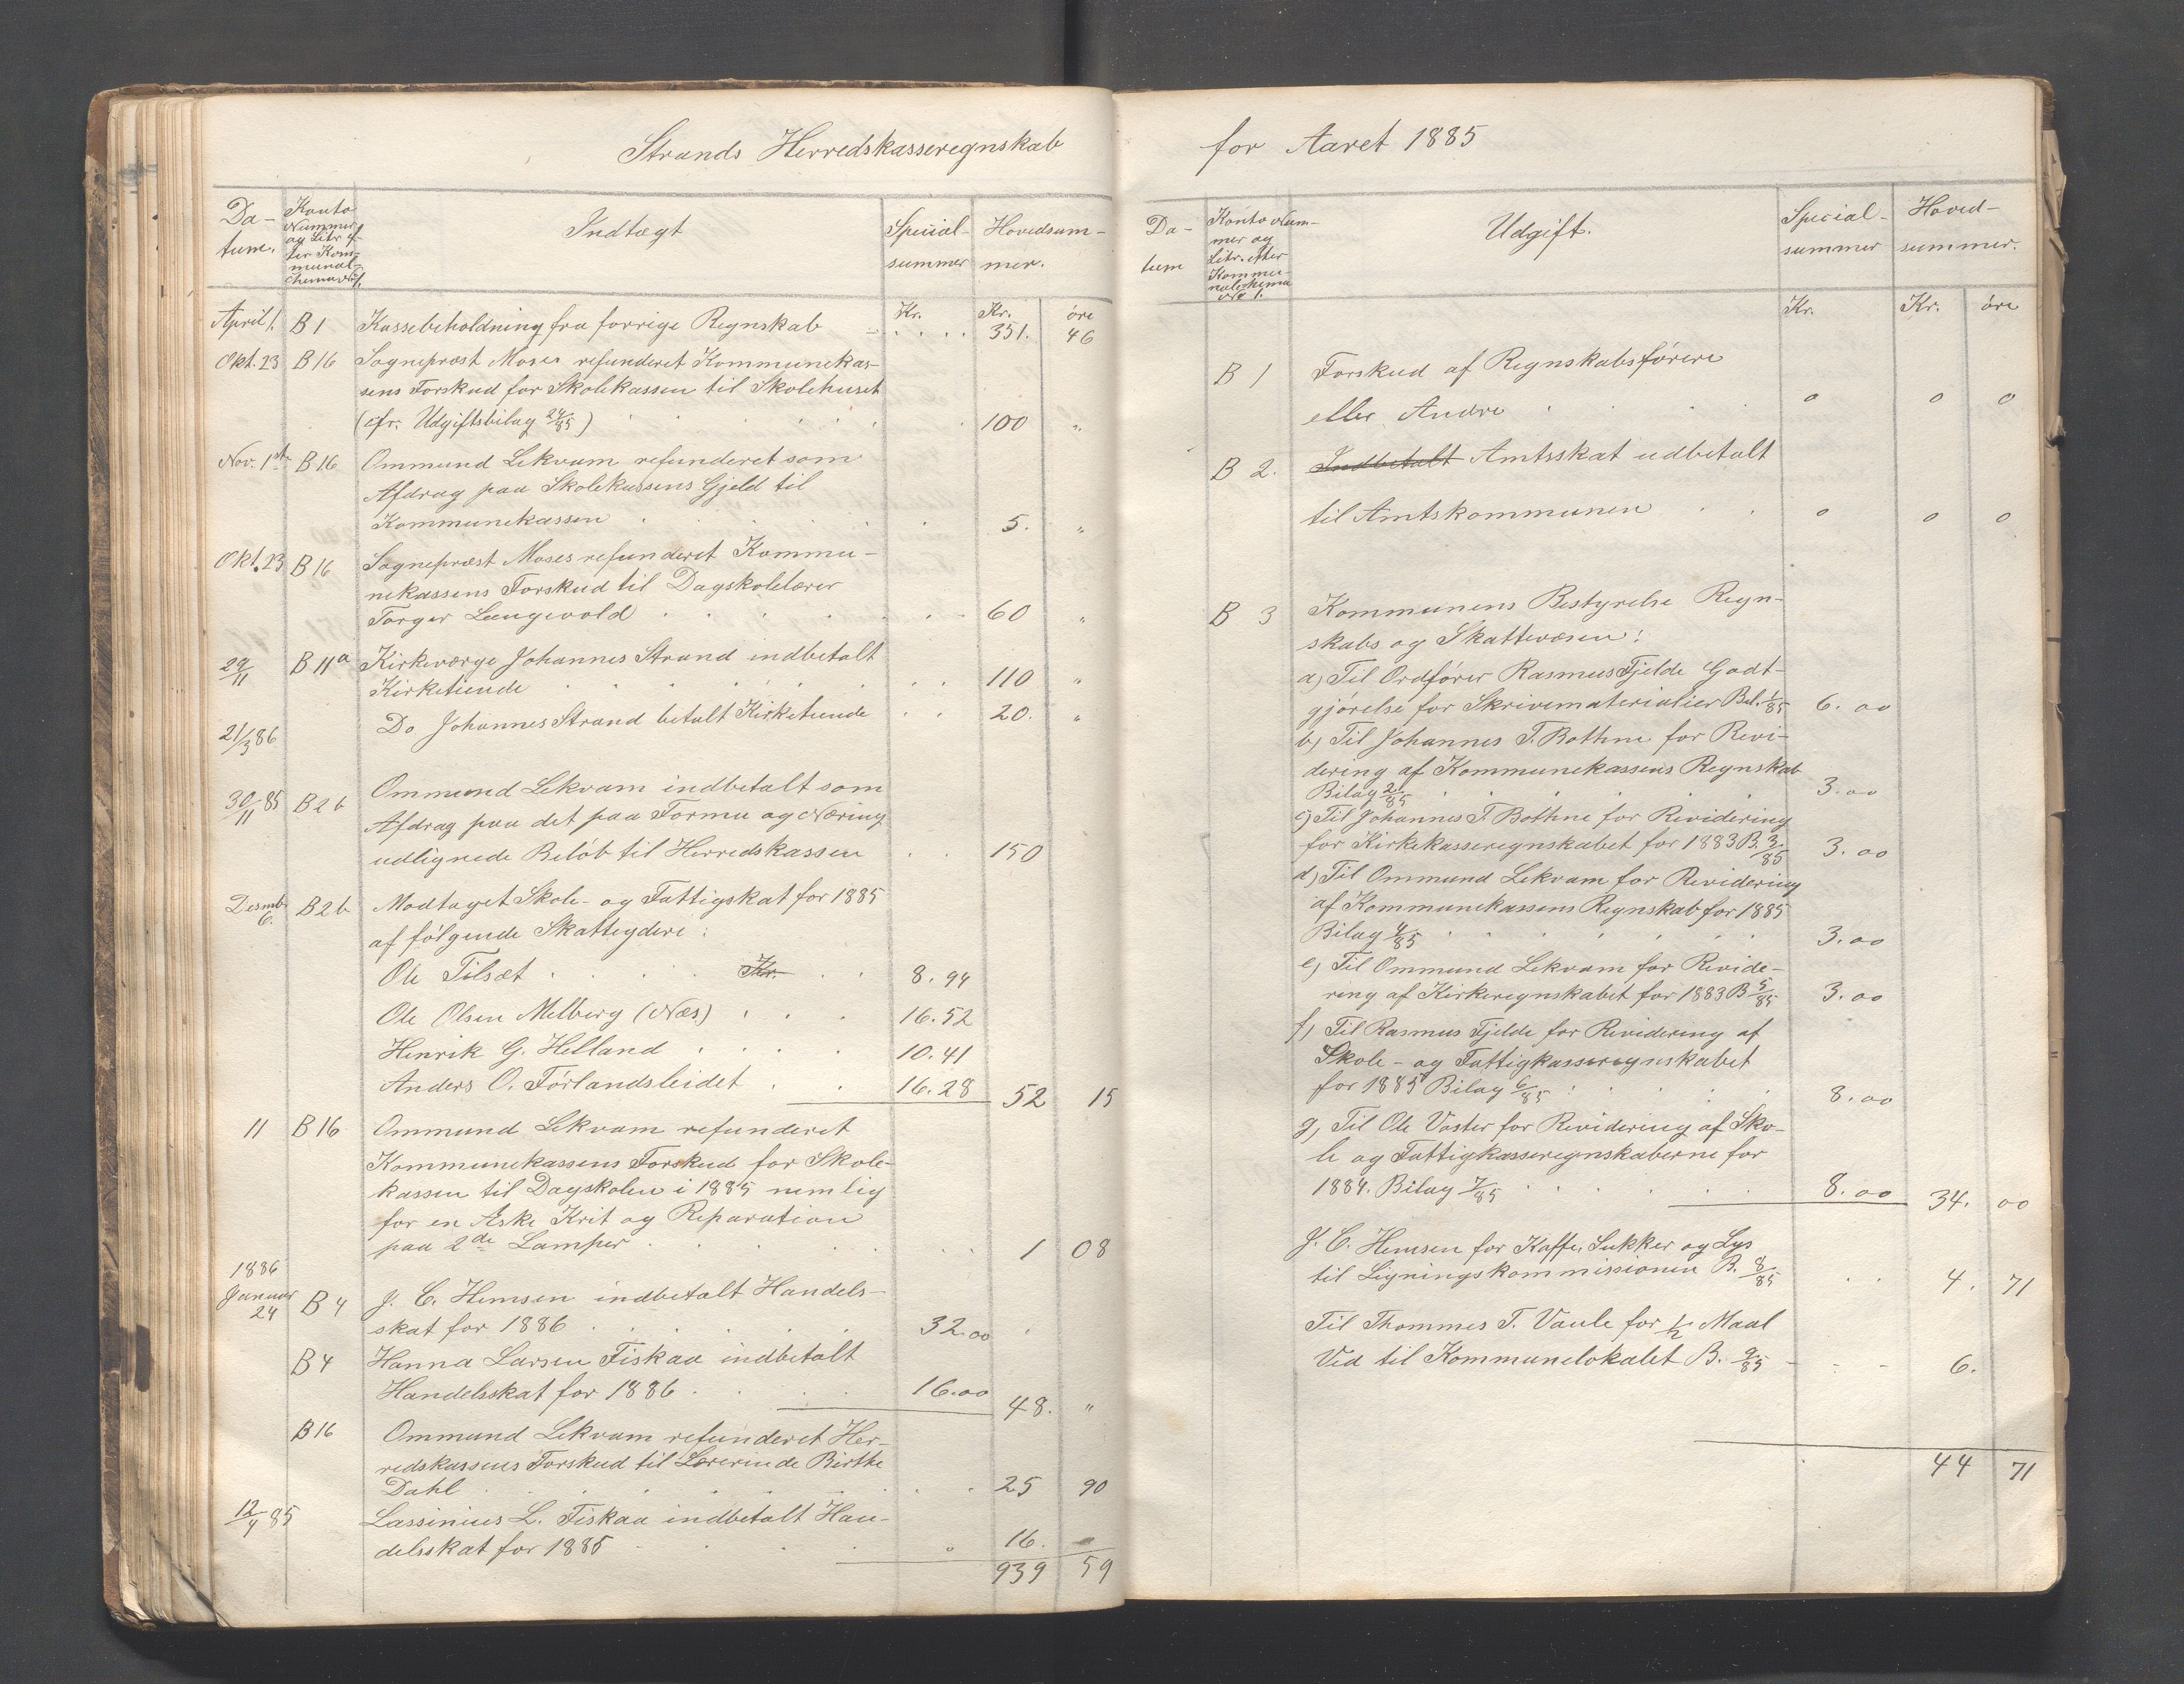 Strands Herredskasseregnskab
Da-
tum.
Konto
Nummer
og Litr. ef-
ter Kom-
munal-
schema No 1.
Indtægt
Special-
summer
Hovedsum-
mer.
Kr.
Kr.
øre
April 1. B 1 Kassebeholdning fra forrige Regnskab . . . . 351. 46
Okt. 23 B 16 Sognepræst Moses refunderet Kommunekas-
sens Forskud for Skolekassen til Skolehuset
(cfr. Udgiftsbilag 24/85) . . . . . . 100 "
Nov. 1st B 16 Ommund Lekvam refunderet som
Afdrag paa Skolekassens Gjeld til
Kommunekassen . . . . . 5. "
Okt. 23 B 16 Sognepræst Moses refunderet Kommu-
nekassens Forskud til Dagskolelærer
Torger Langvold . . . . . . 60 "
29/11 B 11a Kirkeværge Johannes Strand indbetalt
Kirketiende . . . . . . . . 110 "
21/3 86 Do Johannes Strand betalt Kirketiende . . 20. "
30/11 85 B 2 b Ommund Lekvam indbetalt som
Afdrag paa det paa Formu og Næring
udlignede Beløb til Herredskassen . . 150
Desmb. 6. B 2 b Modtaget Skole- og Fattigskat for 1885
af følgende Skatteydere:
Ole Tilsæt . . . . Kr. . . 8.94
Ole Olsen Melberg (Næs) . . . 16.52
Henrik G. Helland . . . . 10.41
Anders O. Førlandsleidet . . 16.28 52 15
11 B 16 Ommund Lekvam refunderet
Kommunekassens Forskud for Skole-
kassen til Dagskolen i 1885 nemlig
for en Æske Krit og Reparation
paa 2de Lamper . . . . . . . 1 08
1886
Januar 24 B 4 J. C. Hemsen indbetalt Handels-
skat for 1886 . . . . . 32.00
B 4 Hanna Larsen Fiskaa indbetalt
Handelsskat for 1886 . . . . 16.00 48. "
B 16 Ommund Lekvam refunderet Her-
redskassens Forskud til Lærerinde Birthe
Dahl . . . . . . . . 25 90
12/4 85 Lassinius L. Fiskaa indbetalt Han-
delsskat for 1885 . . . . 16.
939 59
for Aaret 1885
Da-
tum
Konto Num-
mer og
Litr. efter
Kommu-
nalschema
No 1.
Udgift.
Special-
summer
Hoved-
summer.
Kr.
Kr.
øre
B 1 Forskud af Regnskabsførere
eller Andre . . . . 0 0 0
B 2. Indbetalt Amtsskat udbetalt
til Amtskommunen . . 0 0 0
B 3 Kommunens Bestyrelse Regn-
skabs og Skattevæsen:
a) Til Ordfører Rasmus Fjelde Godt-
gjørelse for Skrivematerialier Bil. 1/85 6.00
b) Til Johannes T. Bothne for Revi-
dering af Kommunekassens Regnskab
Bilag 2/85 . . . . . 3.00
c) Til Johannes T. Bothne for Revidering
for Kirkekasseregnskabet for 1883 B. 3/85 3.00
d) Til Ommund Lekvam for Revidering
af Kommunekassens Regnskab for 1885
Bilag 4/85 . . . . . . 3.00
e) Til Ommund Lekvam for Revide-
ring af Kirkeregnskabet for 1883 B 5/85 3.00
f) Til Rasmus Fjelde for Revidering af
Skole- og Fattigkasseregnskabet
for 1885 Bilag 6/85 . . . . . 8.00
g) Til Ole Voster for Revidering af Sko-
le og Fattigkasseregnskaberne for
1884. Bilag 7/85 . . . . . 8.00 34. 00
J. C. Hemsen for Kaffe, Sukker og Lys
til Ligningskommissionen B. 8/85 . . 4. 71
Til Thommes T. Vaule for 1/2 Maal
Ved til Kommunelokalet B. 9/85 - - - 6.
44 71